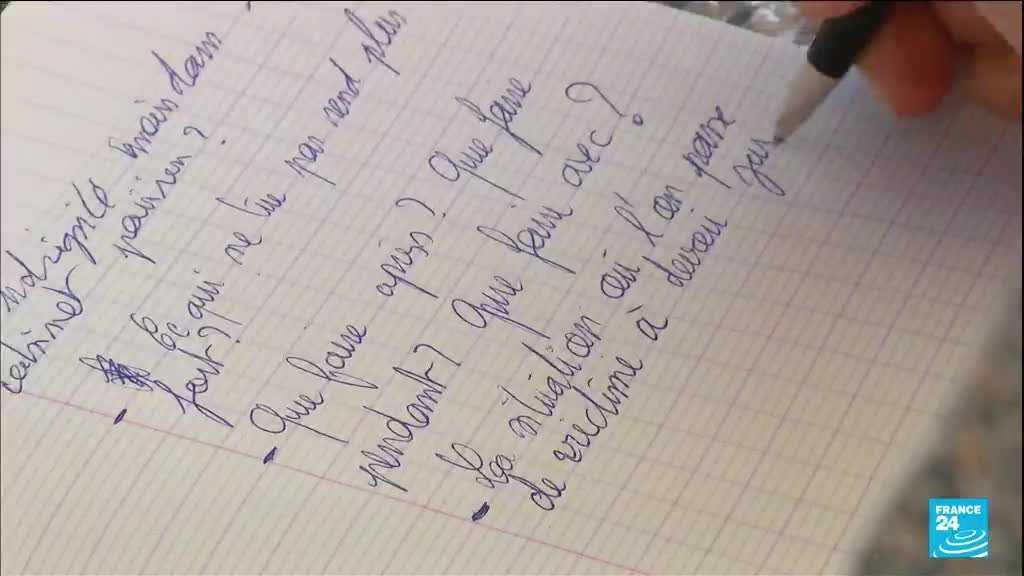 ndignité mais dans
cabinet
Ce qui ne tue pas rend plus
fort ??
- Que faire après ? Que faire
pendant ? Que faire avec ?
- La situation où l'on passe
de victime à devoir jus
FRANCE
24